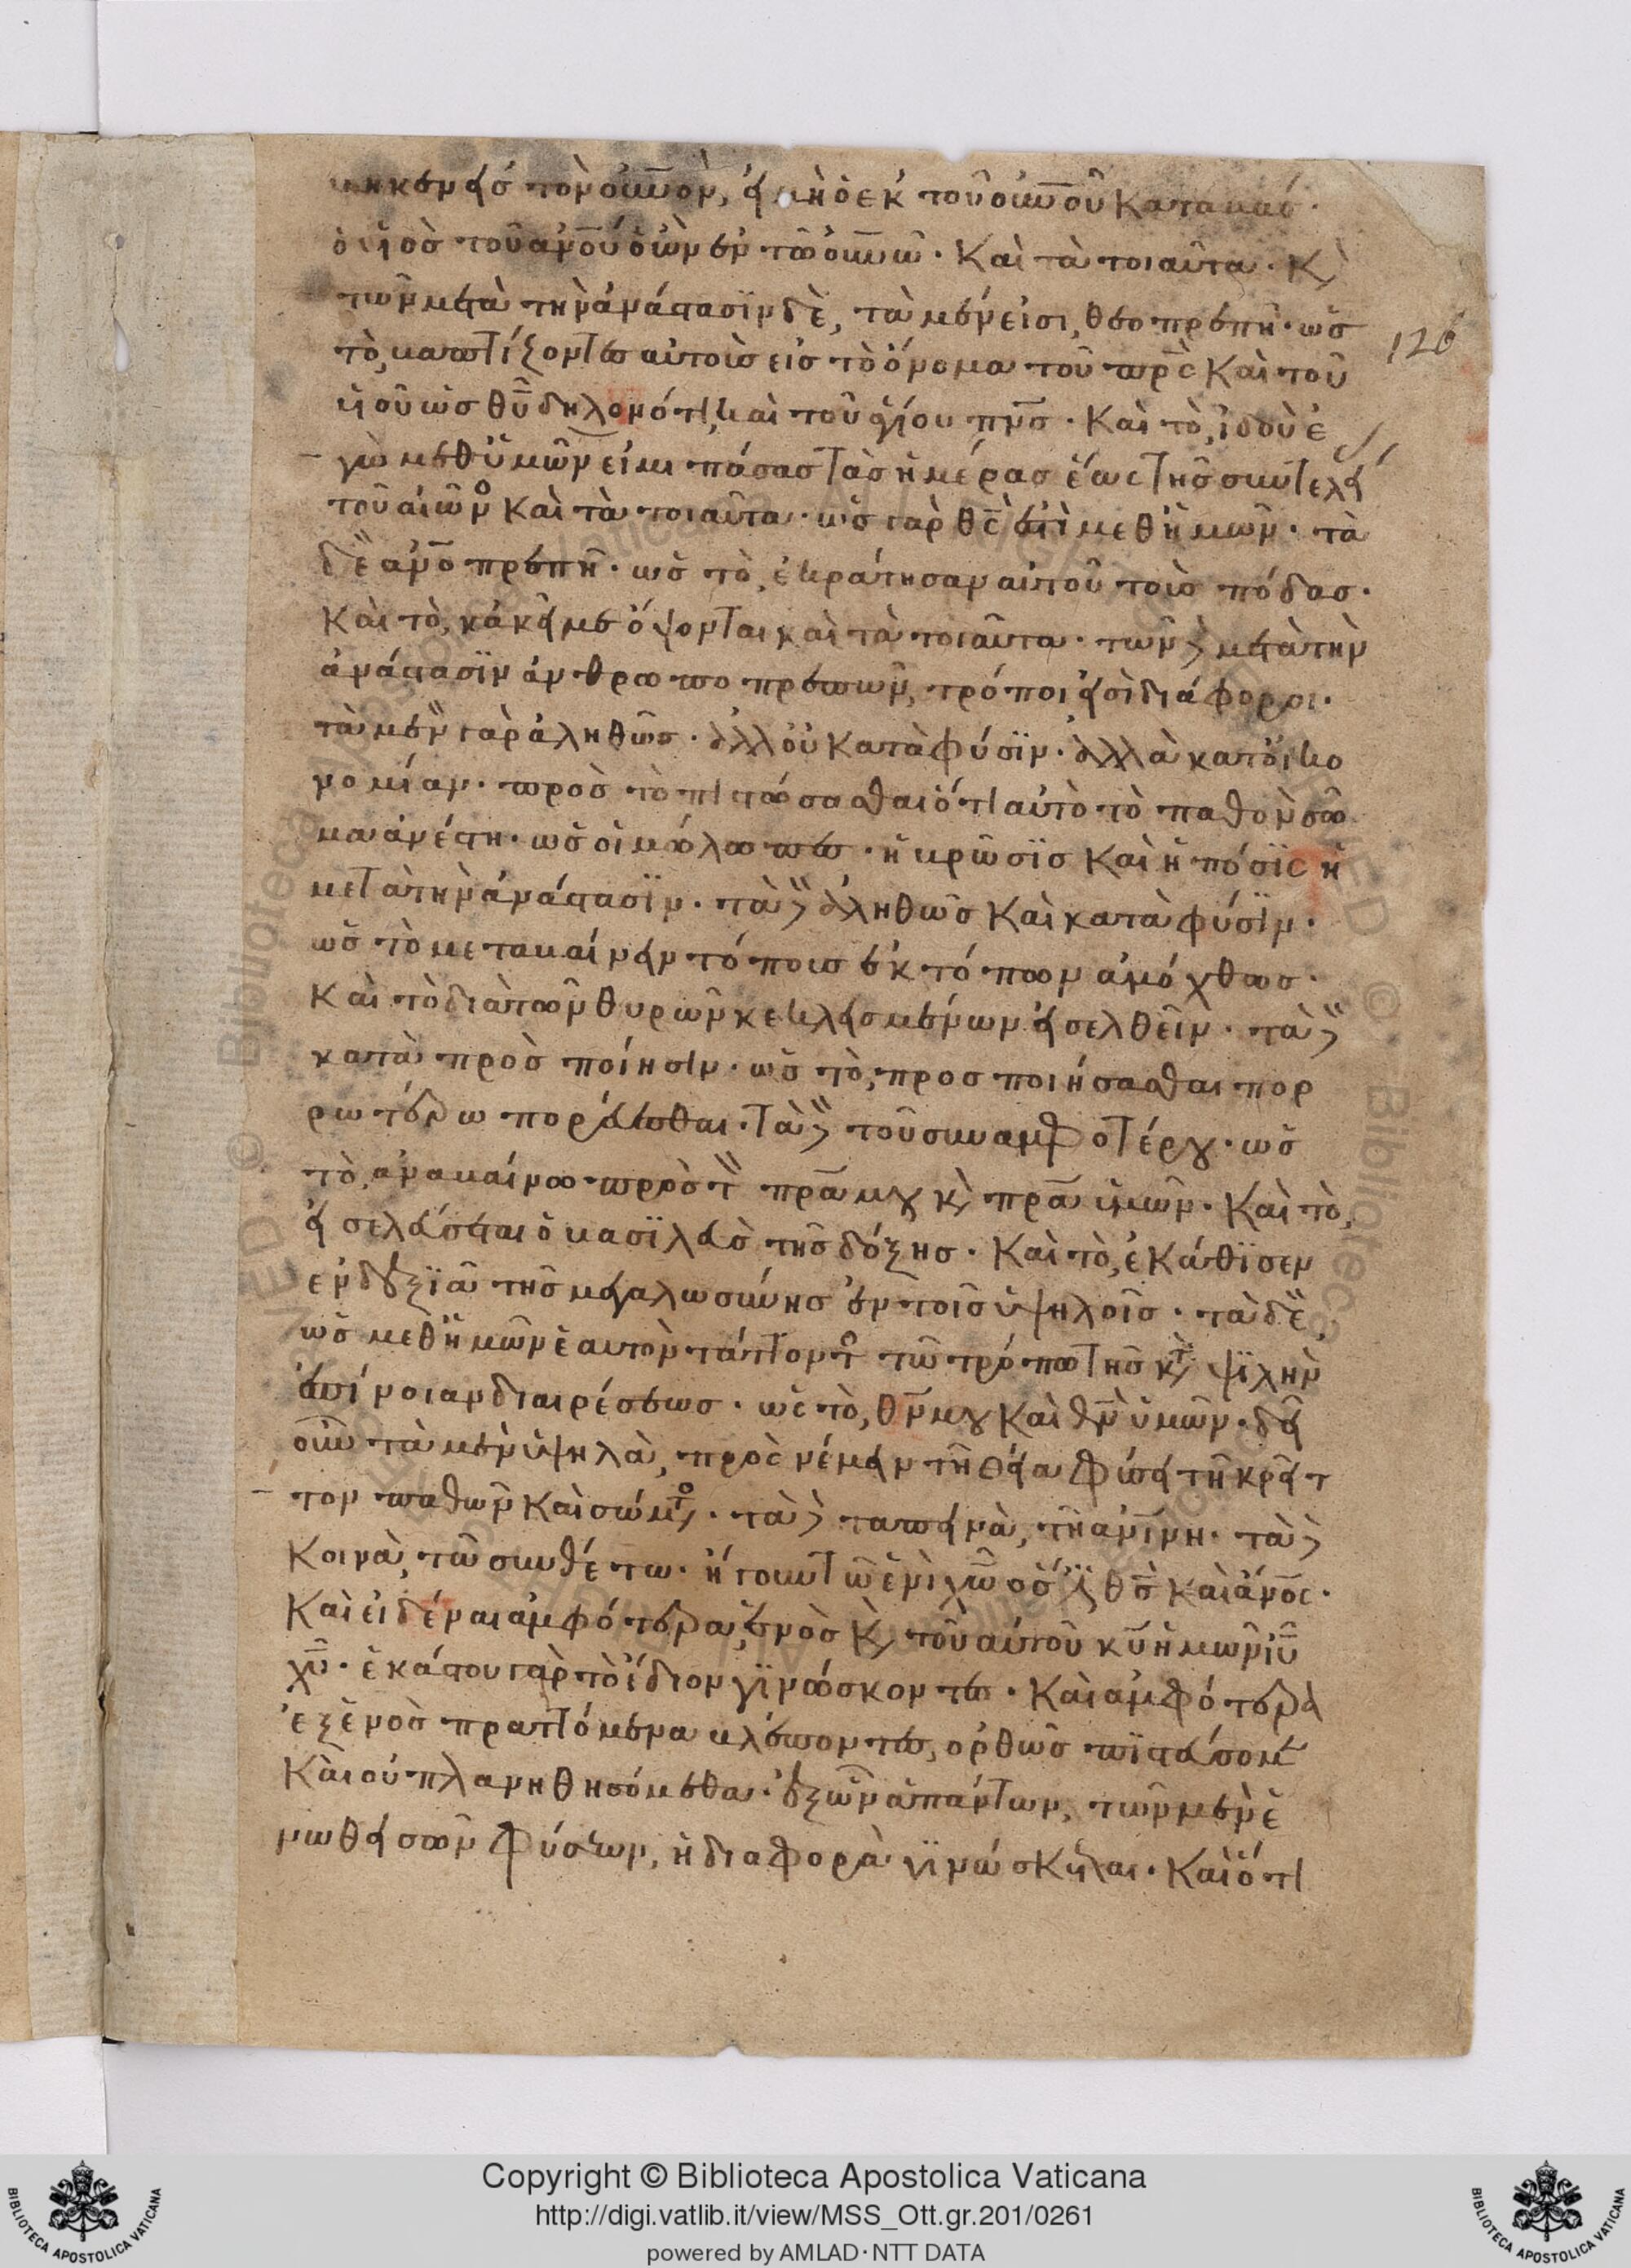 βηκεν εἰς τὸν οὐνον, εἰ μὴ ὁ ἐκ τοῦ οὐνοῦ καταβάς·
ὁ υἱὸς τοῦ ανου ὁ ὢν ἐν τῶ οὐνω· Καὶ τὰ τοιαῦτα· Κ
τῶν μετὰ τὴν ἀνάστασϊν δὲ, τὰ μέν εἰσι, θεοπρεπῆ· ὡς
τὸ, βαπτίζοντες αὐτοὺς εἰς τὸ ὄνομα τοῦ πρς Καὶ τοῦ
υἱοῦ ὡς θυ δηλονότι, καὶ τοῦ ἁγίου πνς· Καὶ τὸ, ἰδοὺ ἐ
γὼ μεθ' ὑμῶν εἰμι πάσας τὰς ἡμέρας ἕως τῆς συντελεί
τοῦ αἰῶνο Καὶ τὰ τοιαῦτα· ὡς γὰρ θς ἐστὶ μεθ' ἡμῶν· τὰ
δὲ ἀνοπρεπῆ· ὡς τὸ, ἐκράτησαν αὐτοῦ τοὺς πόδας·
Καὶ τὸ, κἀκεῖ με ὄψονται καὶ τὰ τοιαῦτα· τῶν δὲ μετὰ τὴν
ἀνάστασϊν ἀνθρωποπρεπῶν, τρόποι εἰσὶ διάφοροι·
τὰ μὲν γὰρ ἀληθῶς· ἀλλ' οὐ κατὰ φύσϊν· ἀλλὰ κατ' οἰκο
νομίαν· πρὸς τὸ πιστώσασθαι ὅτι αὐτὸ τὸ παθὸν σῶ
μα ἀνέστη· ὡς οἱ μώλωπες· ἡ βρῶσϊς Καὶ ἡ πόσϊς ἡ
μετὰ τὴν ἀνάστασϊν· τὰ δὲ ἀληθῶς Καὶ κατὰ φύσϊν·
ὡς τὸ μεταβαίνειν τόπους ἐκ τόπων ἀμόχθως·
Καὶ τὸ διὰ τῶν θυρῶν κεκλεισμένων εἰσελθεῖν· τὰ δὲ
κατὰ προσποίησιν· ὡς τὸ, προσποιήσασθαι πορ
ρωτέρω πορεύεσθαι· τὰ δὲ τοῦ συναμφοτέρου· ὡς
τὸ, ἀναβαίνω πρὸς τὸν πρα μου κ πρα ὑμῶν· Καὶ τὸ,
εἰσελεύσεται ὁ βασϊλεὺς τῆς δόξης· Καὶ τὸ, ἐκάθϊσεν
ἐν δεξϊᾶ τῆς μεγαλωσύνης ἐν τοῖς ὑψηλοῖς· τὰ δὲ,
ὡς μεθ' ἡμῶν ἑαυτὸν τάττοντο τῶ τρόπω τῆς κτ ψϊλὴν
ἐπίνοιαν διαιρέσεως· ὡς τὸ, θν μου Καὶ θν ὑμῶν· δεῖ
οὖν τὰ μὲν ὑψηλὰ, προσνέμειν τῆ θεία φύσει τῆ κρείτ
τον παθῶν Καὶ σώμτο· τὰ δὲ ταπεινὰ, τῆ ἀνινη· τὰ δὲ
Κοινὰ, τῶ συνθέτω· ἤγουν τῶ ἑνὶ χω ὅς ἐστι θς καὶ ἀνος·
Καὶ εἰδέναι ἀμφότερα, ἑνὸς κ τοῦ αὐτοῦ κυ ἡμῶν ιυ
χυ· ἑκάστου γὰρ τὸ ἴδιον γϊνώσκοντες· Καὶ ἀμφότερα
ἐξ ἑνὸς πραττόμενα βλέποντες, ὀρθῶς πϊστεύσομε
Καὶ οὐ πλανηθησόμεθα· ἐξ ὧν ἁπάντων, τῶν μὲν ἑ
νωθεισῶν φύσεων, ἡ διαφορὰ γϊνώσκεται· Καὶ ὅτι
126
Copyright © Biblioteca Apostolica Vaticana
http://digi.vatlib.it/view/MSS_Ott.gr.201/0261
powered by AMLAD·NTT DATA
BIBLIOTECA APOSTOLICA VATICANA
BIBLIOTECA APOSTOLICA VATICANA